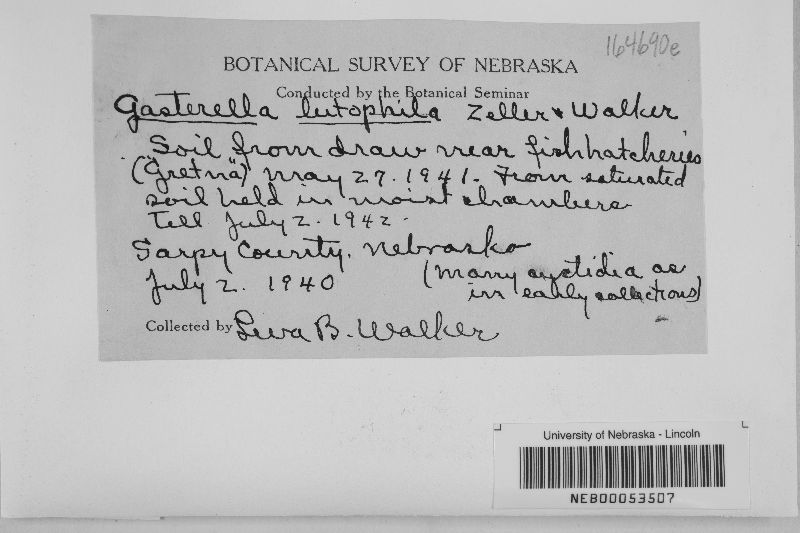 164690e
BOTANICAL SURVEY OF NEBRASKA
Conducted by the Botanical Seminar
Gasterella lutophila Zeller & Walker
Soil from draw near fishhatcheries
("Gretna") May 27. 1941. From saturated
soil held in moist chambers
till July 2. 1942.
Sarpy County, Nebraska
July 2. 1940 (Many cystidia as
in early collections)
Collected by Leva B. Walker
University of Nebraska - Lincoln
NEB00053507